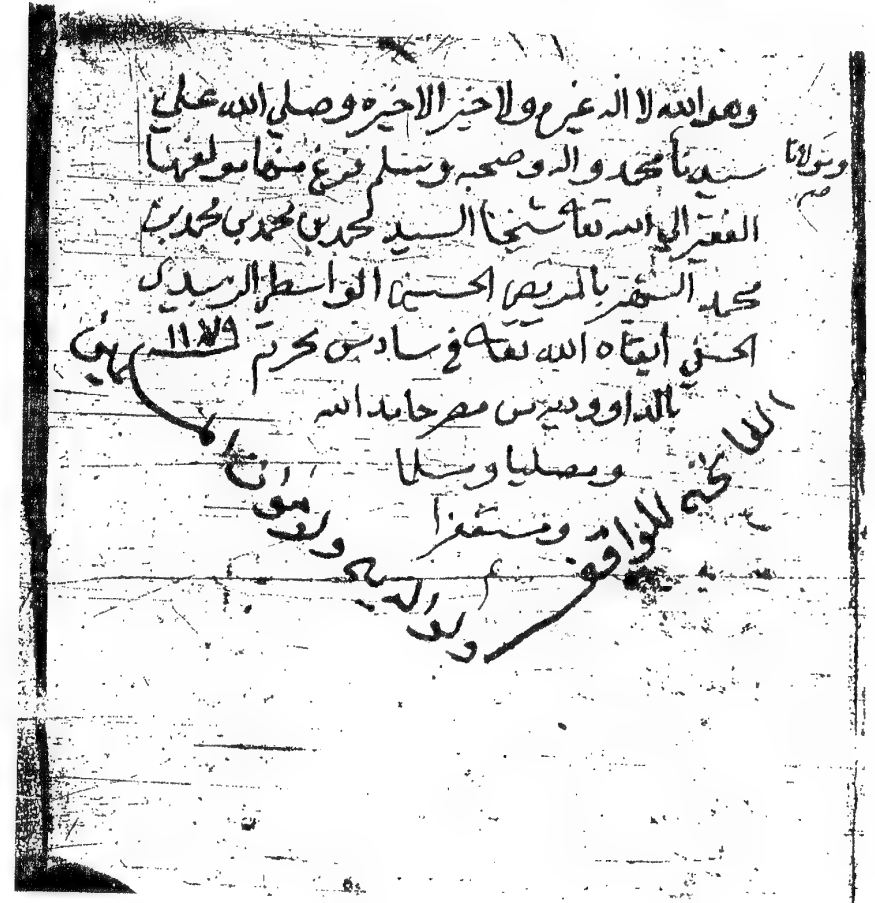 وهو الله لا اله غيره ولا خير الا خيره وصلي الله علي
سيدنا ومولانا محمد واله وصحبه وسلم فرغ منها مولفها
صح
الفقير الي الله تعالى شيخنا السيد محمد بن محمد بن محمد بن
محمد الشهير بالمرتضى الحسيني الواسطي الزبيدي
الحنفي ابقاه الله تعالى في سادس محرم سنة ١١٧٩
بالداوودية من مصر حامدا لله
ومصليا ومسلما
ومستغفرا
م
الفاتحه للواقف
ولوالديه ولاموات المسلمين